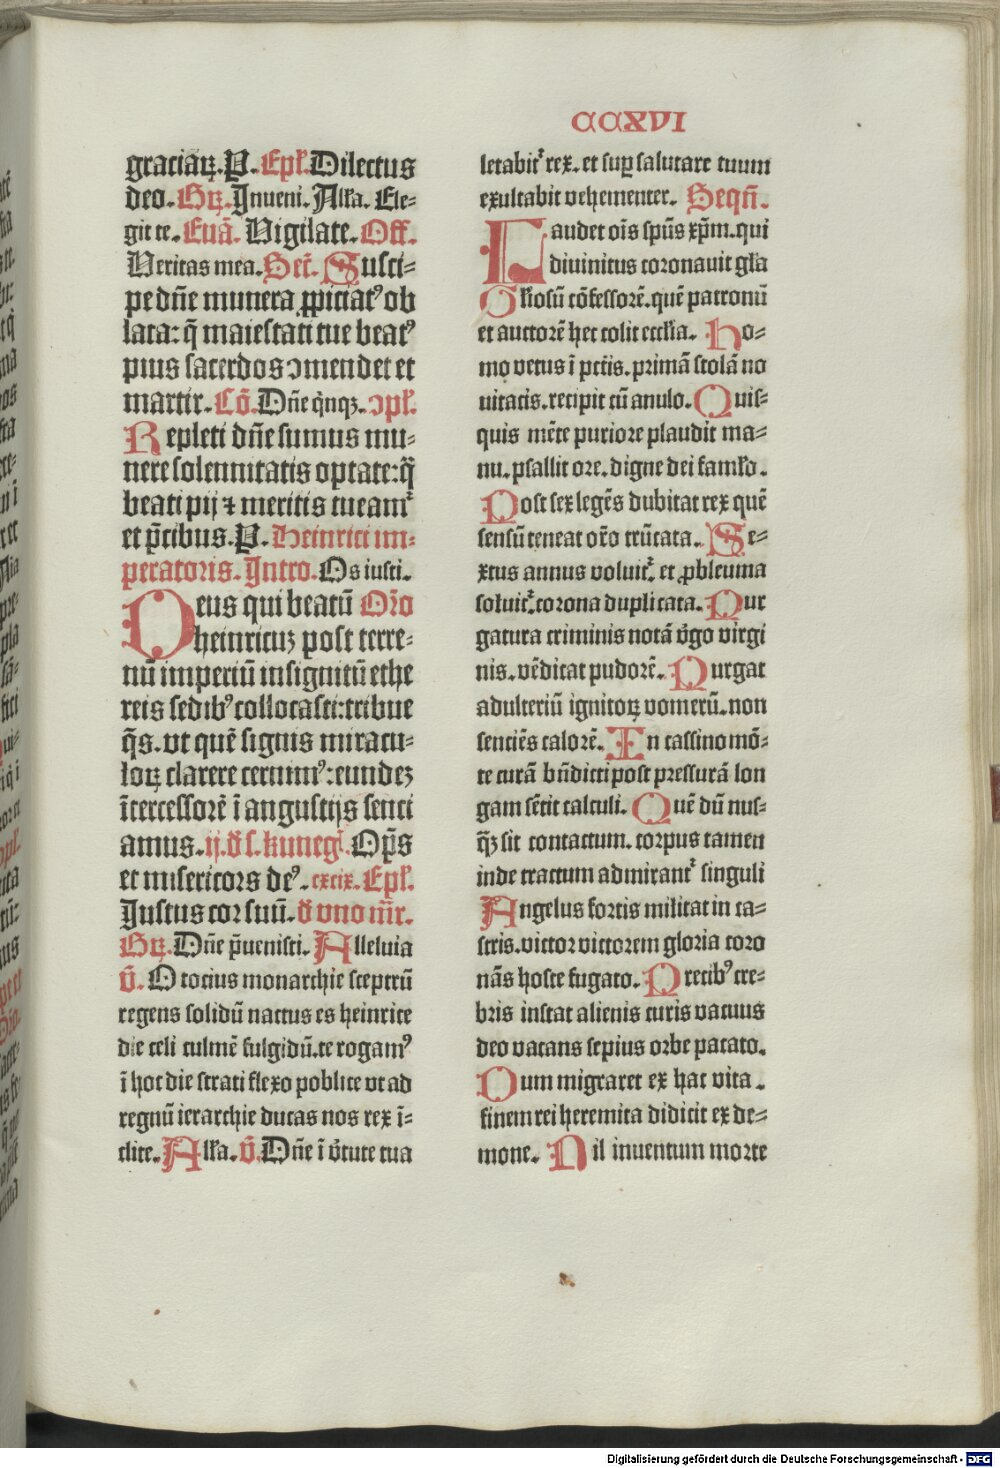 CCXVI
graciaꝝ. P. Epl̕. Dilectus
deo. Gꝝ. Inueni. Al̕la. Ele⸗
git te. Euā. Vigilate. Off.
Veritas mea. Sec̄. Susci⸗
pe dn̄e munera ꝓpiciatꝰ ob
lata: q̄ maiestati tue beatꝰ
pius sacerdos ↄmendet et
martir. Cō. Dn̄e q̇nqꝫ. ↄpl̕.
Repleti dn̄e sumus mu⸗
nere solennitatis optate: q̄
beati pij ⁊ meritis tueamr̄
et p̄cibus. P. Heinrici im⸗
peratoris. Intro. Os iusti.
Deus qui beatū Orō
heinricuꝫ post terre⸗
nū imperiū insignitū ethe
reis sedibꝰ collocasti: tribue
q̄s. vt quē signis miracu⸗
loꝝ clarere cernimꝰ: eundeꝫ
ītercessorē ī angustijs senci
amus. ij. d̄ s. kunegͥ. Op̄s
et misericors deꝰ. cxcix. Epl̕.
Justus cor suū. d̄ vno mr̄.
Gꝝ. Dn̄e p̄uenisti. Alleluia
V̄. O tocius monarchie sceptrū
regens solidū nactus es heinrice
die celi culmē fulgidū. te rogamꝰ
ī hoc die strati flexo poblice vt ad
regnū ierarchie ducas nos rex ī⸗
clite. Al̕la. V̄. Dn̄e ī v̄tute tua
letabitr̄ rex. et suꝑ salutare tuum
exultabit vehementer. Seqn̄.
Laudet oīs spūs xp̄m. qui
diuinitus coronauit gl̕a
Gl̕iosū cōfessorē. quē patronū
et auctorē hec colit eccl̕ia. Ho⸗
mo vetus ī pct̄is. primā stolā no
uitatis. recipit cū anulo. Quis⸗
quis mēte puriore plaudit ma⸗
nu. psallit ore. digne dei faml̕o.
Post sex legēs dubitat rex quē
sensū teneat orō trūcata. Se⸗
xtus annus voluitr̄. et ꝓbleuma
soluitr̄. corona duplicata. Pur
gatura criminis notā v̄go virgi
nis. vēditat pudorē. Purgat
adulteriū ignitoꝝ vomerū. non
senciēs calorē. In cassino mō⸗
te curā bn̄dicti post pressurā lon
gam sētit calculi. Quē dū nus⸗
q̄ꝫ sit contactum. corpus tamen
inde tractum admirantr̄ singuli
Angelus fortis militat in ca⸗
stris. victor victorem gloria coro
nās hoste fugato. Precibꝰ cre⸗
bris instat alienis curis vacuus
deo vacans sepius orbe pacato.
Dum migraret ex hac vita.
finem rei heremita didicit ex de⸗
mone. Nil inuentum morte
Digitalisierung gefördert durch die Deutsche Forschungsgemeinschaft - DFG